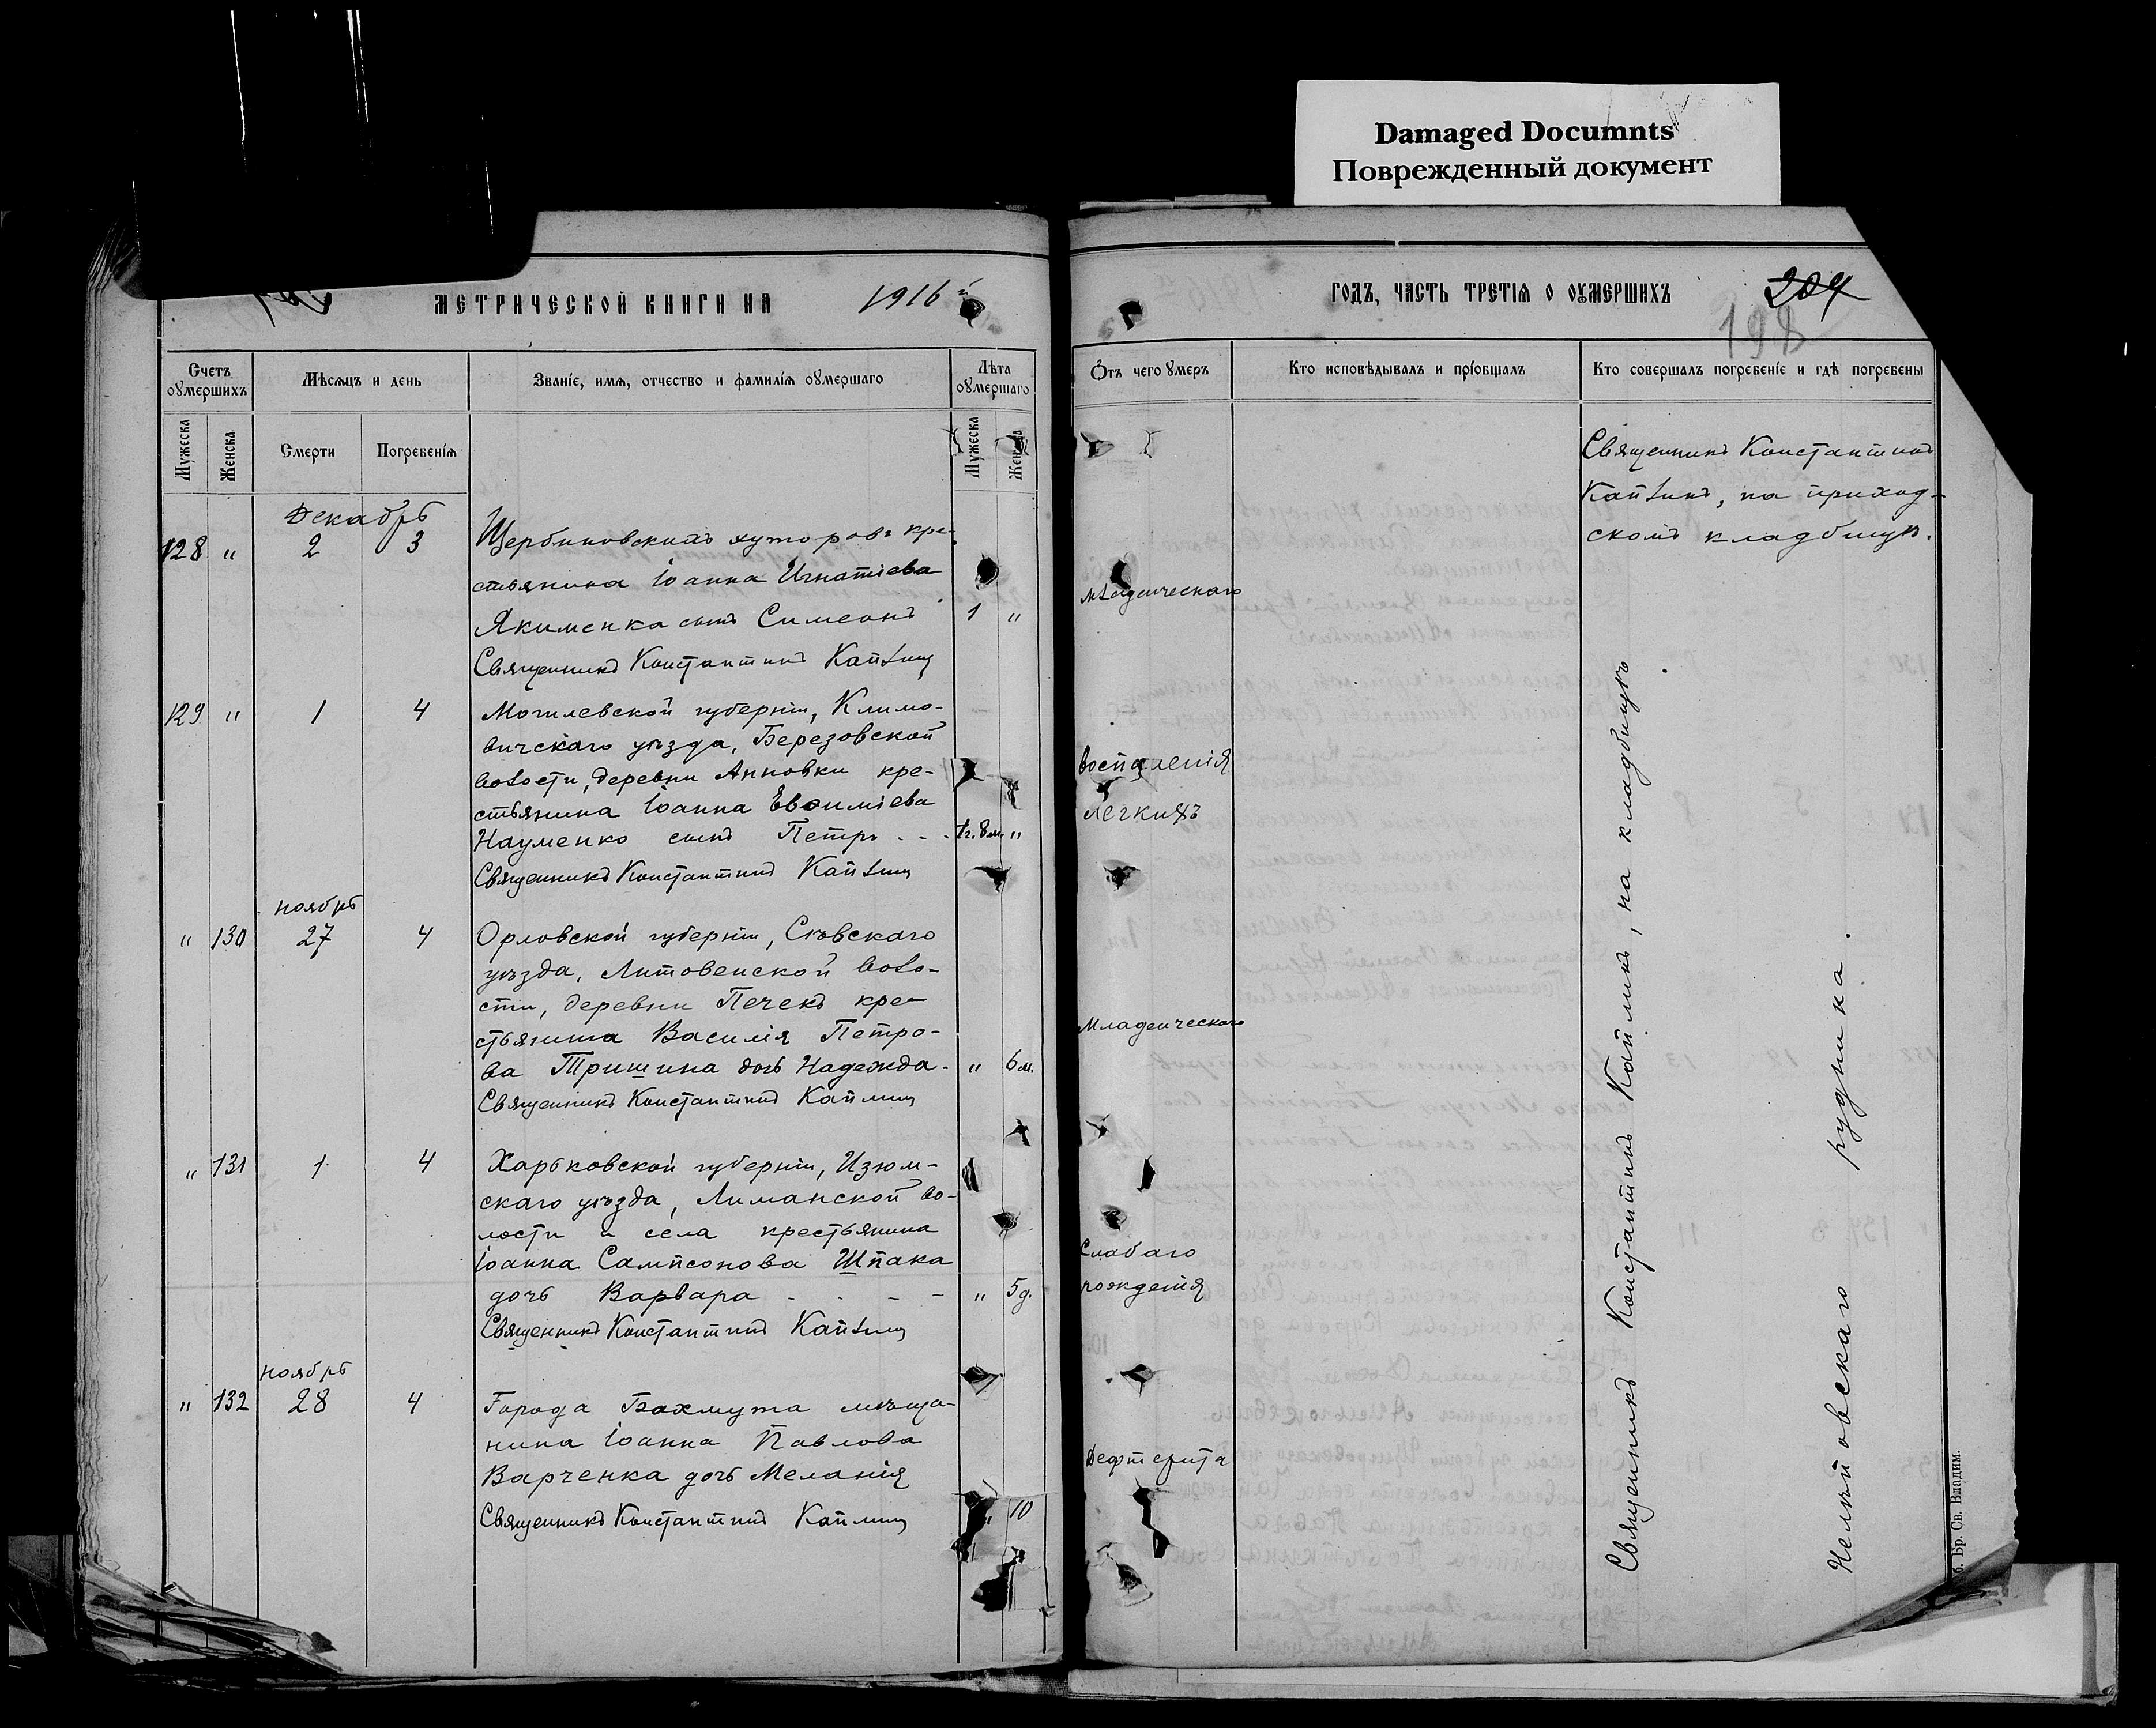 Damaged Documnts
Поврежденный документ
МЕТРИЧЕСКОЙ КНИГИ НА 1916й
ГОДЪ, ЧАСТЬ ТРЕТІЯ О ОУМЕРШИХЪ
204
198
Счетъ оумершихъ
Мѣсяцъ и день
Званіе, имя, отчество и фамилія оумершаго
Лѣта оумершаго
Мужеска
Женска
Смерти
Погребенія
Мужеска
Женска
Отъ чего умеръ
Кто исповѣдывалъ и пріобщалъ
Кто совершалъ погребеніе и гдѣ погребены
Декабрь
128 " 2 3 Щербиновскихъ хуторовъ кре-
стьянина Іоанна Игнатіева
Якименка сынъ Симеонъ 1 "
Священникъ Константинъ Каплин
Младенческаго
Священникъ Константинъ
Каплинъ, на приход-
скомъ кладбищѣ.
129 " 1 4 Могилевской губерніи, Климо-
вичскаго уѣзда, Березовской
волости, деревни Анновки кре-
стьянина Іоанна Евѳиміева
Науменко сынъ Петръ - - - 1г. 8м. "
Священникъ Константинъ Каплин
воспаленія
легкихъ
ноябрь
" 130 27 4 Орловской губерніи, Сѣвскаго
уѣзда, Литовенской воло-
сти, деревни Печекъ кре-
стьянина Василія Петро-
ва Тришина дочь Надежда - " 6 м.
Священникъ Константинъ Каплин
Младенческаго
" 131 1 4 Харьковской губерніи, Изюм-
скаго уѣзда, Лиманской во-
лости и села крестьянина
Іоанна Сампсонова Шпака
дочь Варвара - - - - " 5 д.
Священникъ Константинъ Каплин
Слабаго
рожденія
ноябрь
" 132 28 4 Города Бахмута мѣща-
нина Іоанна Павлова
Варченка дочь Меланія
Священникъ Константинъ Каплин
10
Дефтерита
Священникъ Константинъ Каплинъ, на кладбищѣ
Нелѣповскаго рудника.
б. Бр. Св. Владим.